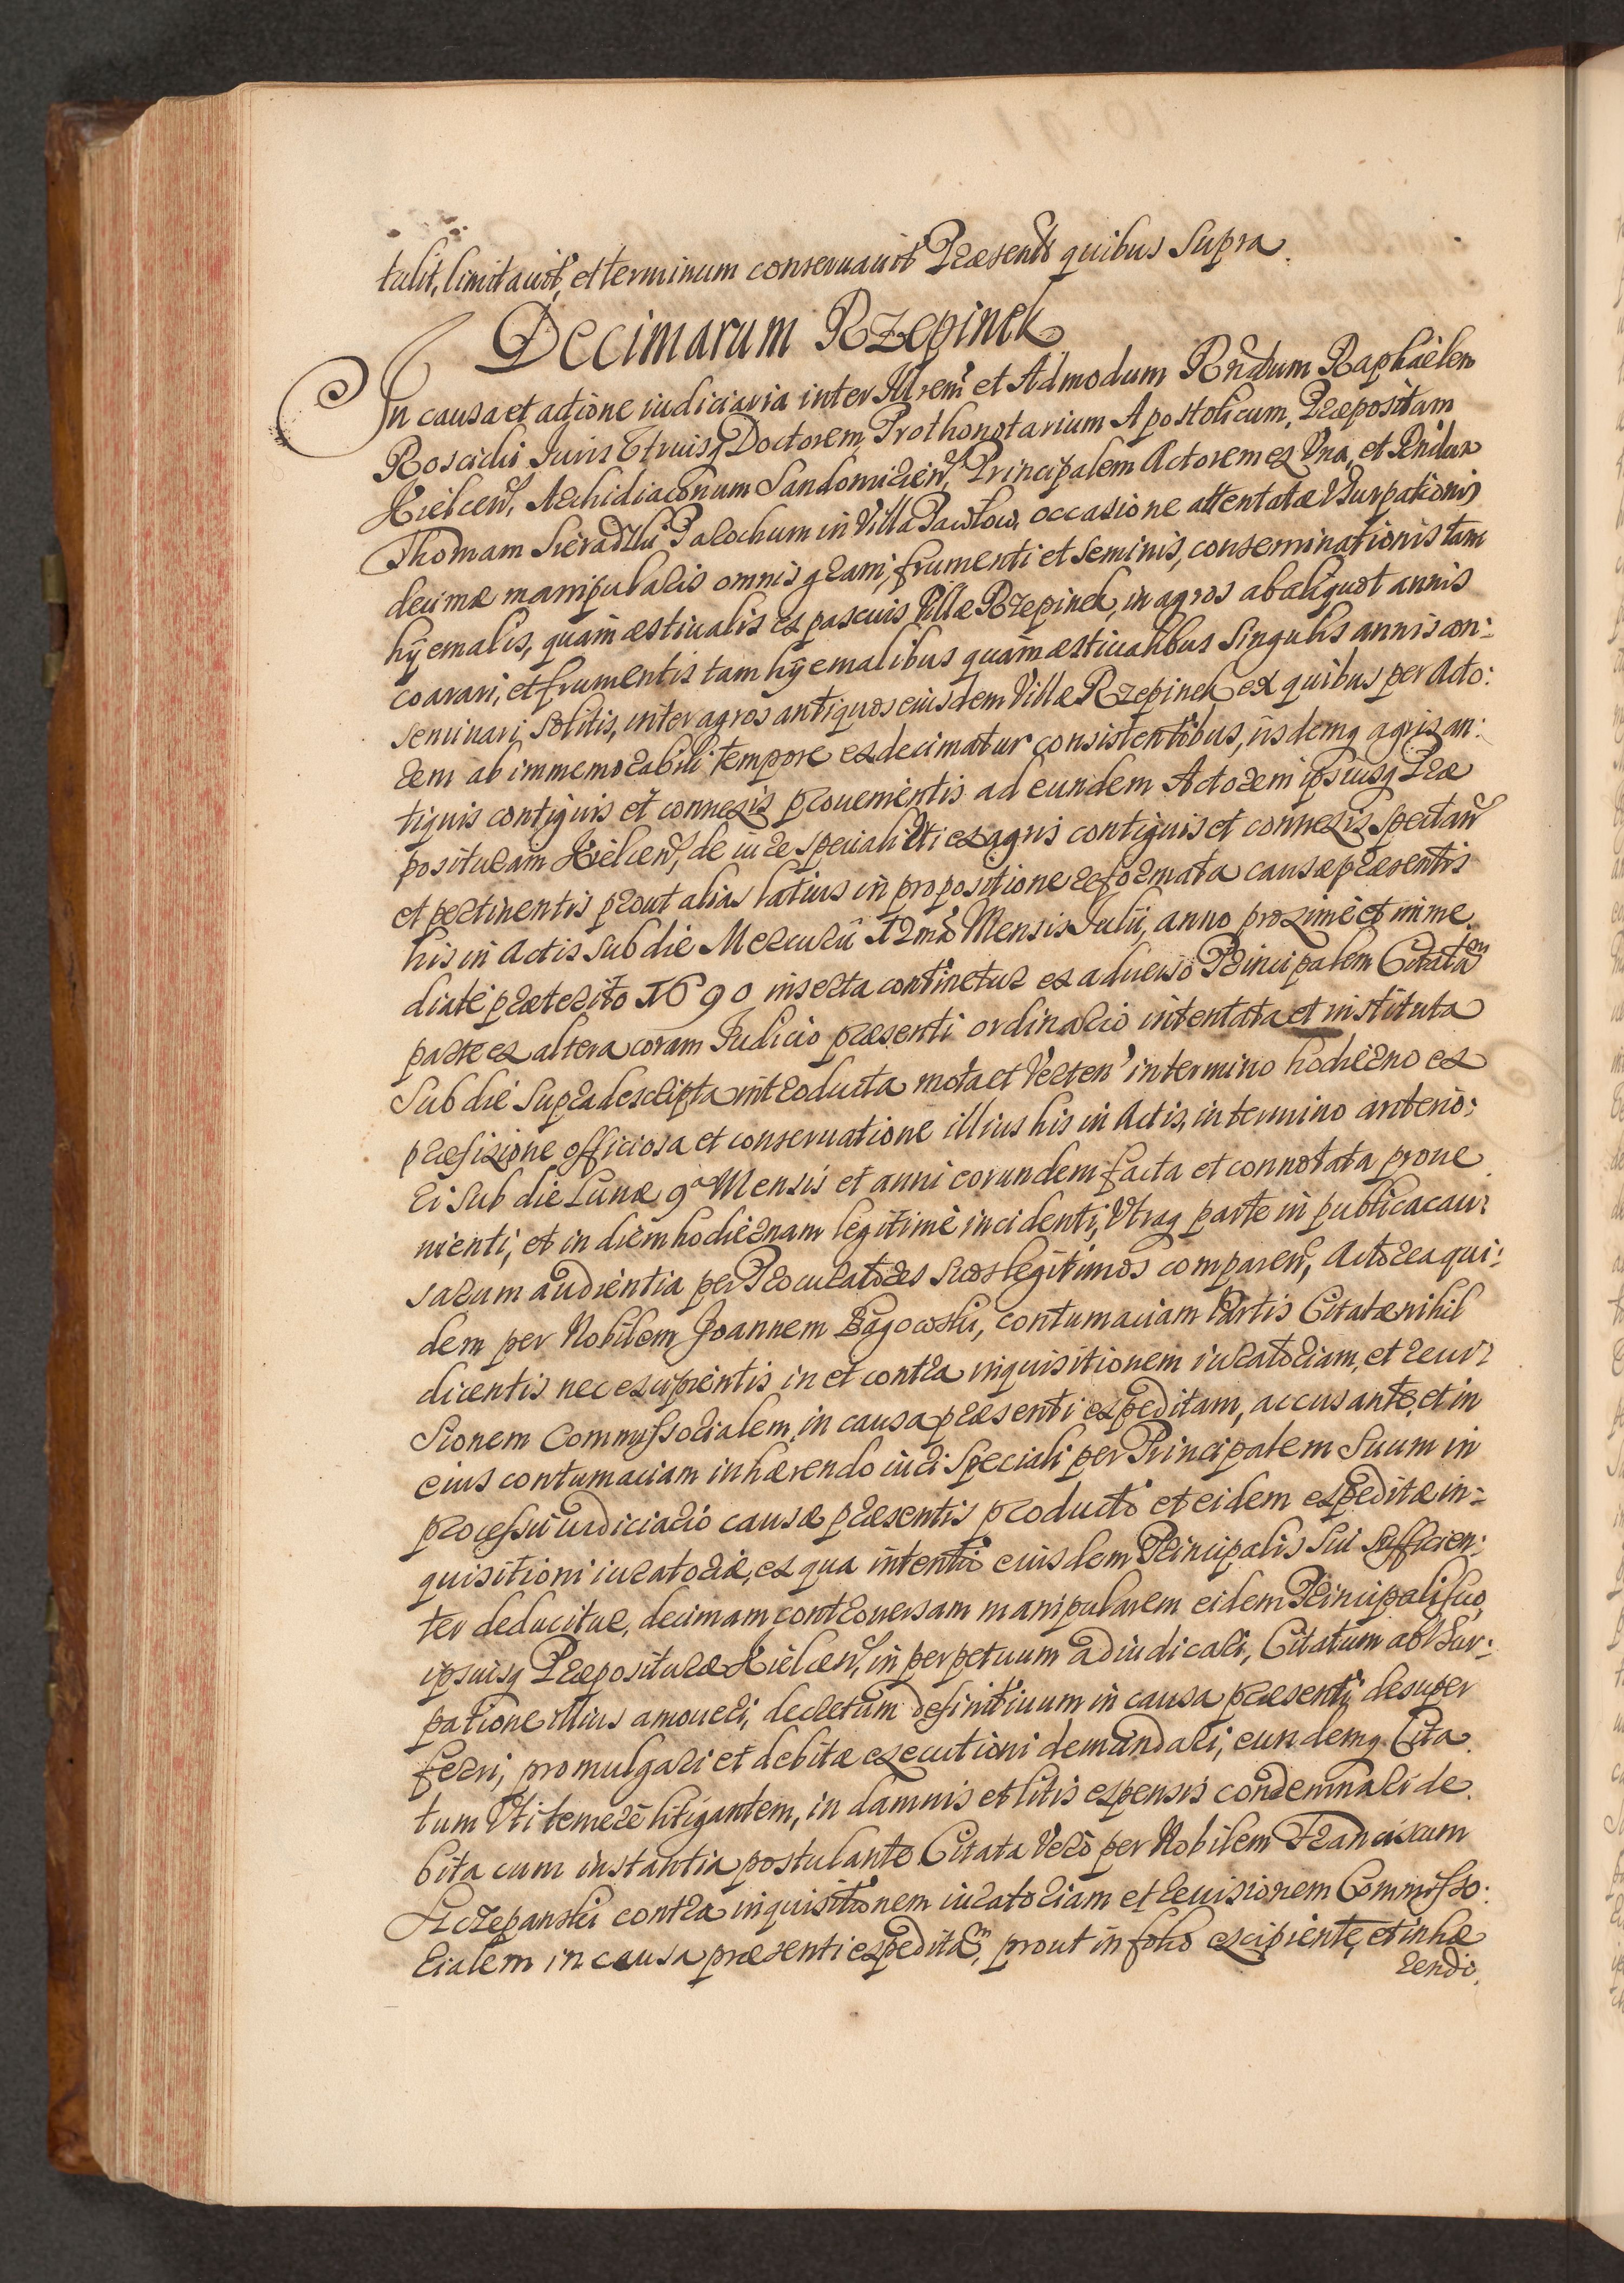 tulit, limitavit, et terminum conservavit Præsentibus quibus Supra.
Decimarum Rzepinek
In causa et actione iudiciaria inter Illrem et Admodum Rndum Raphaëlem
Roscidii Iuris Vtriusq Doctorem, Prothonotarium Apostolicum, Præpositum
Kielcen, Archidiaconum Sandomirien, Principalem Actorem ex Vna, et Rndum
Thomam Sieradzki Parochum in Villa Pawłow, occasione attentatæ Vsurpationis
decimæ manipularis omnis grani, frumenti et seminis, conseminationis tam
hyemalis, quam æstiualis ex pascuis Villæ Rzepinek, in agros ab aliquot annis
coarari, et frumentis tam hyemalibus quam æstiualibus Singulis annis con:
seminari, solitis, inter agros antiquos eiusdem Villæ Rzepinek ex quibus per Acto:
rem ab immemorabili tempore ex decimatur consistentibus, iisdemq agris an:
tiquis contiguis et connexis prouenientis ad eundem Actorem ipsiusq Præ
posituram Kielcen, de iure speciali Vti ex agris contiguis et connexis spectan
et pertinentis prout alias latius in propositione reformata causæ præsentis
his in Actis sub die Mercurii 12ma Mensis Iulii, anno proximè et imme.
diatè præterito 1690 inserta continetur ex aduerso Principalem Citatam
parte ex altera coram Iudicio præsenti ordinario intentata et instituta
Sub die Supradescripta introducta mota et Verten in termino hodierno ex
præfixione officiosa et conseruatione illius his in Actis, in termino anterio:
ri sub die Lunæ 9a Mensis et anni eorundem facta et connotata proue
nienti, et in diem hodiernam legitimè incidenti, Vtraq parte in publica cau:
sarum audientia per Procuratores suos legitimos comparen, Actorea qui:
dem per Nobilem Joannem Bagocoski, contumaciam Partis Citatæ nihil
dicentis nec excipientis in et contra inquisitionem iuratoriam, et reui:
sionem Commissorialem, in causa præsenti expeditam, accusante, et in
eius contumaciam inhærendo iuri Speciali per Principalem Suum in
processu iudiciario causæ præsentis producto et eidem expeditæ in:
quisitioni iuratoriæ, ex qua intentio eiusdem Principalis Sui Sufficien:
ter deducitur, decimam controuersam manipularem eidem Principali suo,
ipsuisq Præposituræ Kielcen, in perpetuum adiudicari, Citatum ab Vsur:
patione illius amoueri, decretum definitiuum in causa præsenti desuper
ferri, promulgari et debitæ executioni demandari, eundemq Cita
tum Vti temerè litigantem, in damnis et litis expensis condemnari de.
bita cum instantia postulante. Citata Verò per Nobilem Franciscum
Szczepanski contra inquisitionem iuratoriam et reuisionem Commisso:
rialem in causa præsenti expeditam, prout in folio excipiente, et inhæ
rendo.